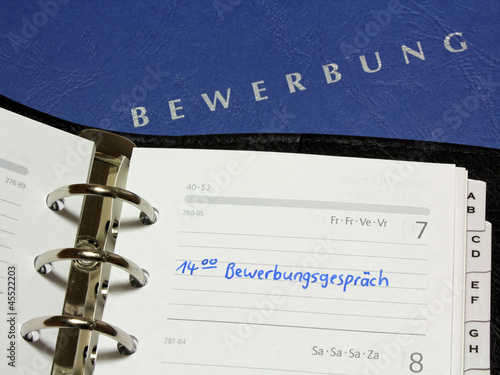 BEWERBUNG
276-89
40-52
280-85
Fr · Fr · Ve · Vr
7
14⁰⁰ Bewerbungsgespräch
281-84
Sa · Sa · Sa · Za
8
A
B
C
D
E
F
G
H
Adobe Stock | #45522203